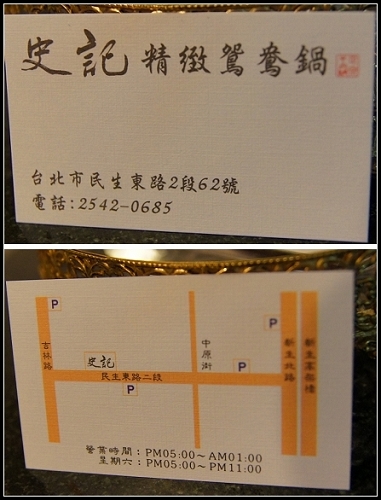 史記 精緻鴛鴦鍋
台北市民生東路2段62號
電話:2542-0685
P
P
吉林路
中原街
新生北路
新生高架橋
史記
P
民生東路二段
P
營業時間:PM05:00~AM01:00
星期六:PM05:00~PM11:00